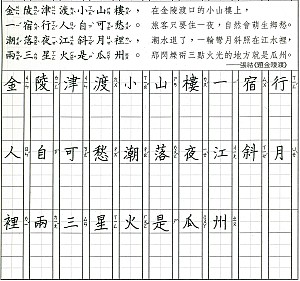 金陵津渡小山樓， 在金陵渡口的小山樓上，
一宿行人自可愁。 旅客只要住一夜，自然會萌生鄉愁。
潮落夜江斜月裡， 潮水退了，一輪彎月斜照在江水裡，
兩三星火是瓜州。 那閃爍兩三點火光的地方就是瓜州。
——張祜《題金陵渡》
金陵津渡小山樓一宿行
人自可愁潮落夜江斜月
裡兩三星火是瓜州